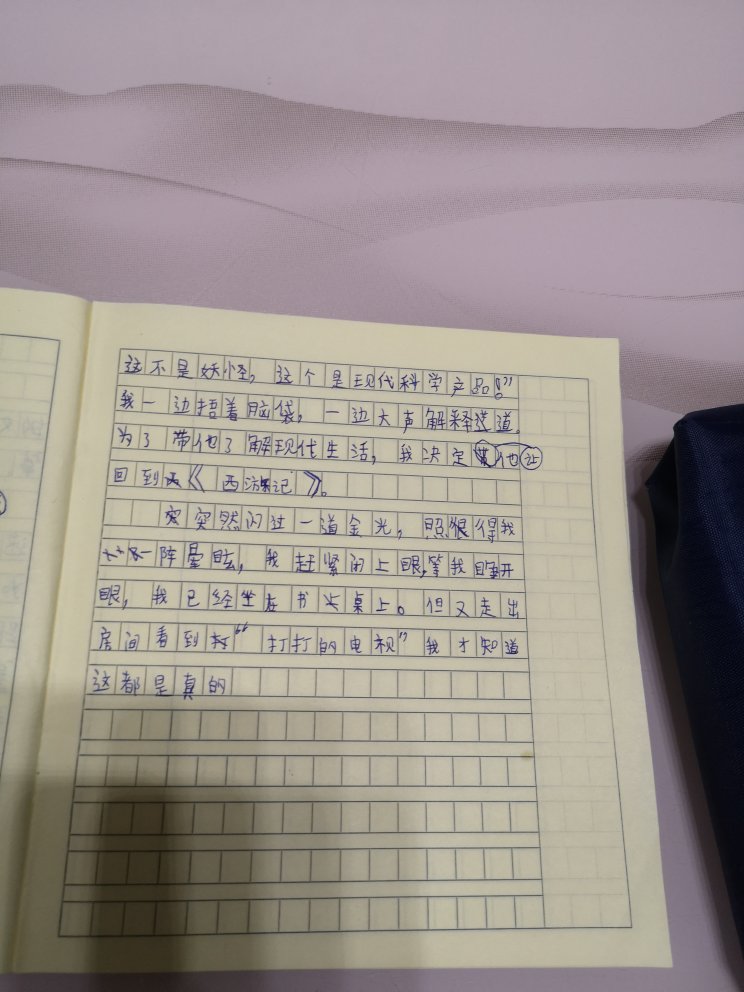 这不是妖怪，这个是现代科学产品。”
我一边捂着脑袋，一边大声解释道。
为了带他了解现代生活，我决定他
回到《西游记》。
突然闪过一道金光，照得我
一阵晕眩，我赶紧闭上眼，等我睁开
眼，我已经坐在书桌上。但又走出
房间看到“打打的电视”我才知道
这都是真的